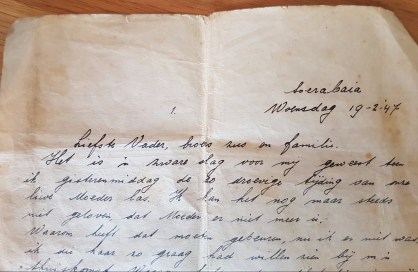 Soerabaia
1. Woensdag 19-2-'47
Liefste Vader, broers zus en familie.
Het is 'n zware dag voor mij geweest toen
ik gisterenmiddag de zo droevige tijding van onze
lieve Moeder las. Ik kan het nog maar steeds
niet geloven dat Moeder er niet meer is.
Waarom heeft dat moeten gebeuren, nu ik er niet was
ik die haar zo graag had willen zien bij m'n
thuiskomst